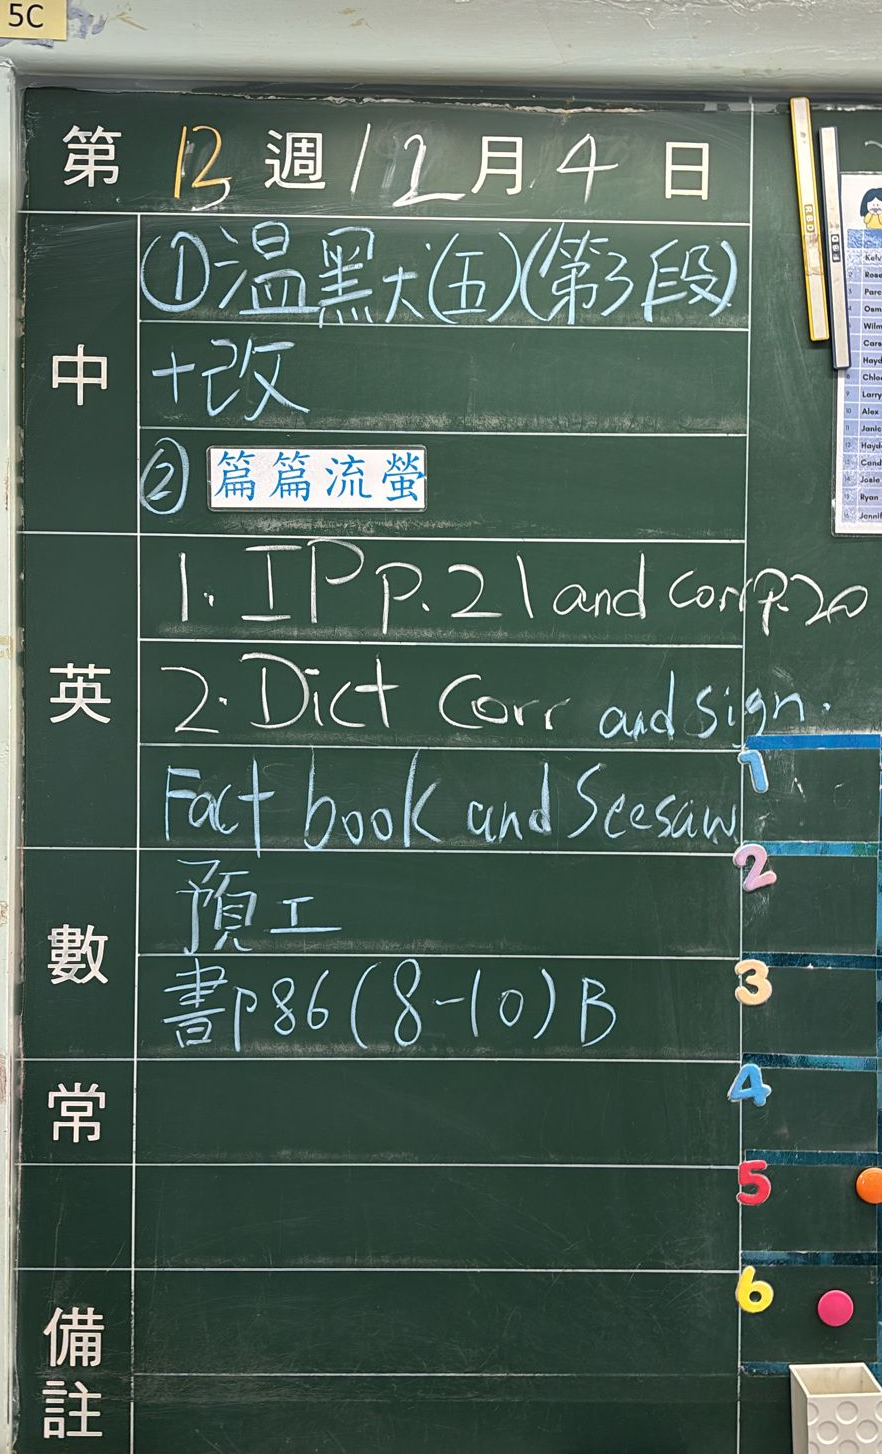 5C
第 13 週 12 月 4 日
中
①溫默犬(五)(第3段)
+改
② 篇篇流螢
英
1. IP p.21 and corr p.20
2. Dict Corr and sign.
Fact book and Seesaw
數
預工
書p86(8-10)B
常
備註
1
2
3
4
5
6
Larry
Alex
Ryan
Josie